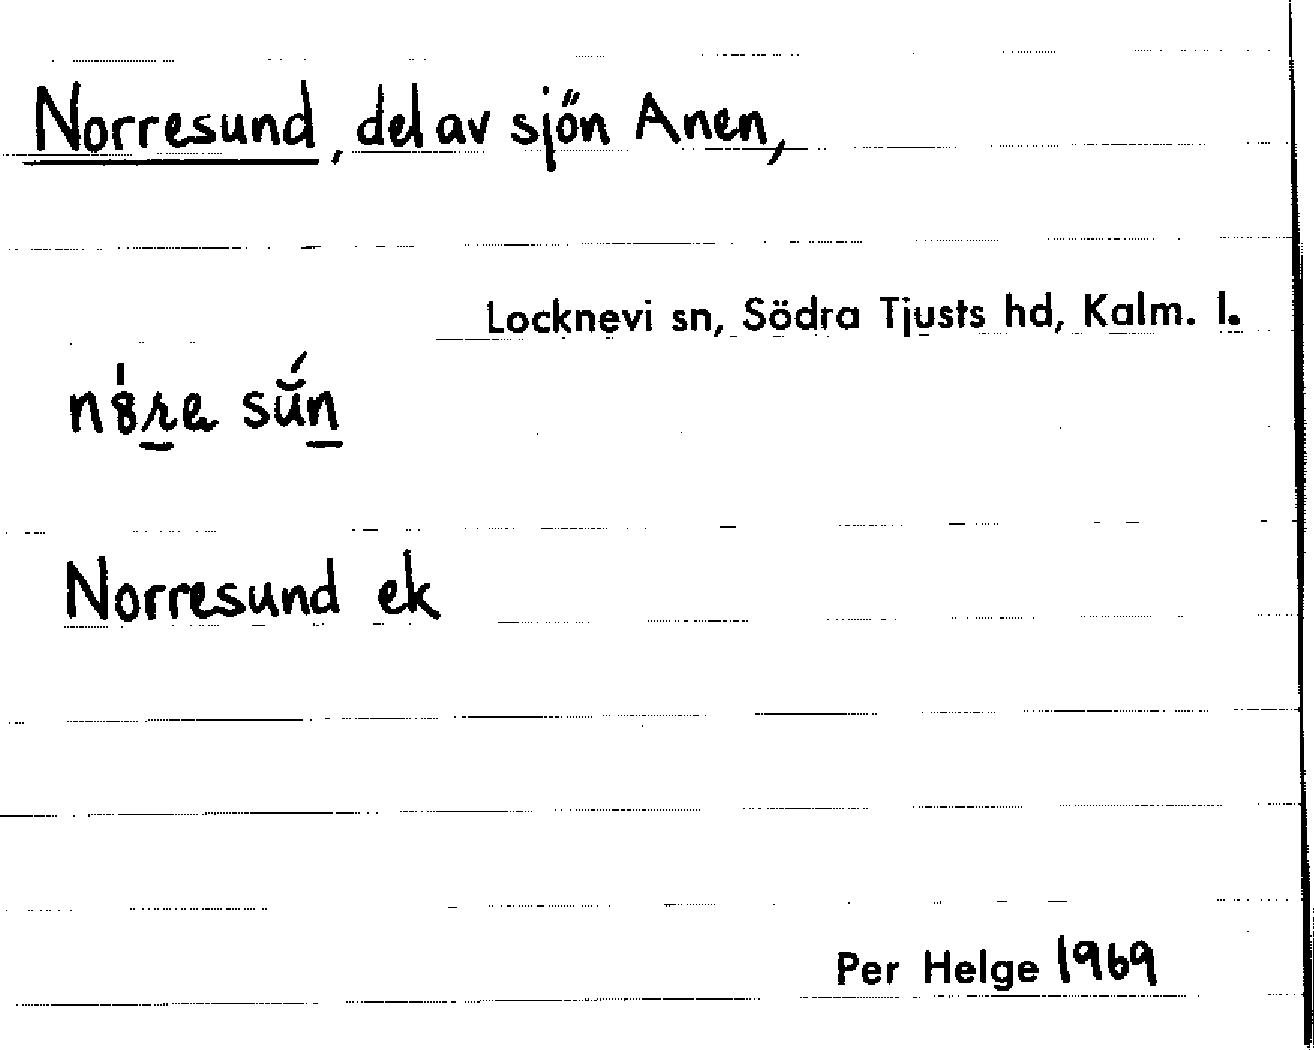 Norresund, del av sjön Anen,
Locknevi sn, Södra Tjusts hd, Kalm. l.
Norresund ek
Per Helge 1969